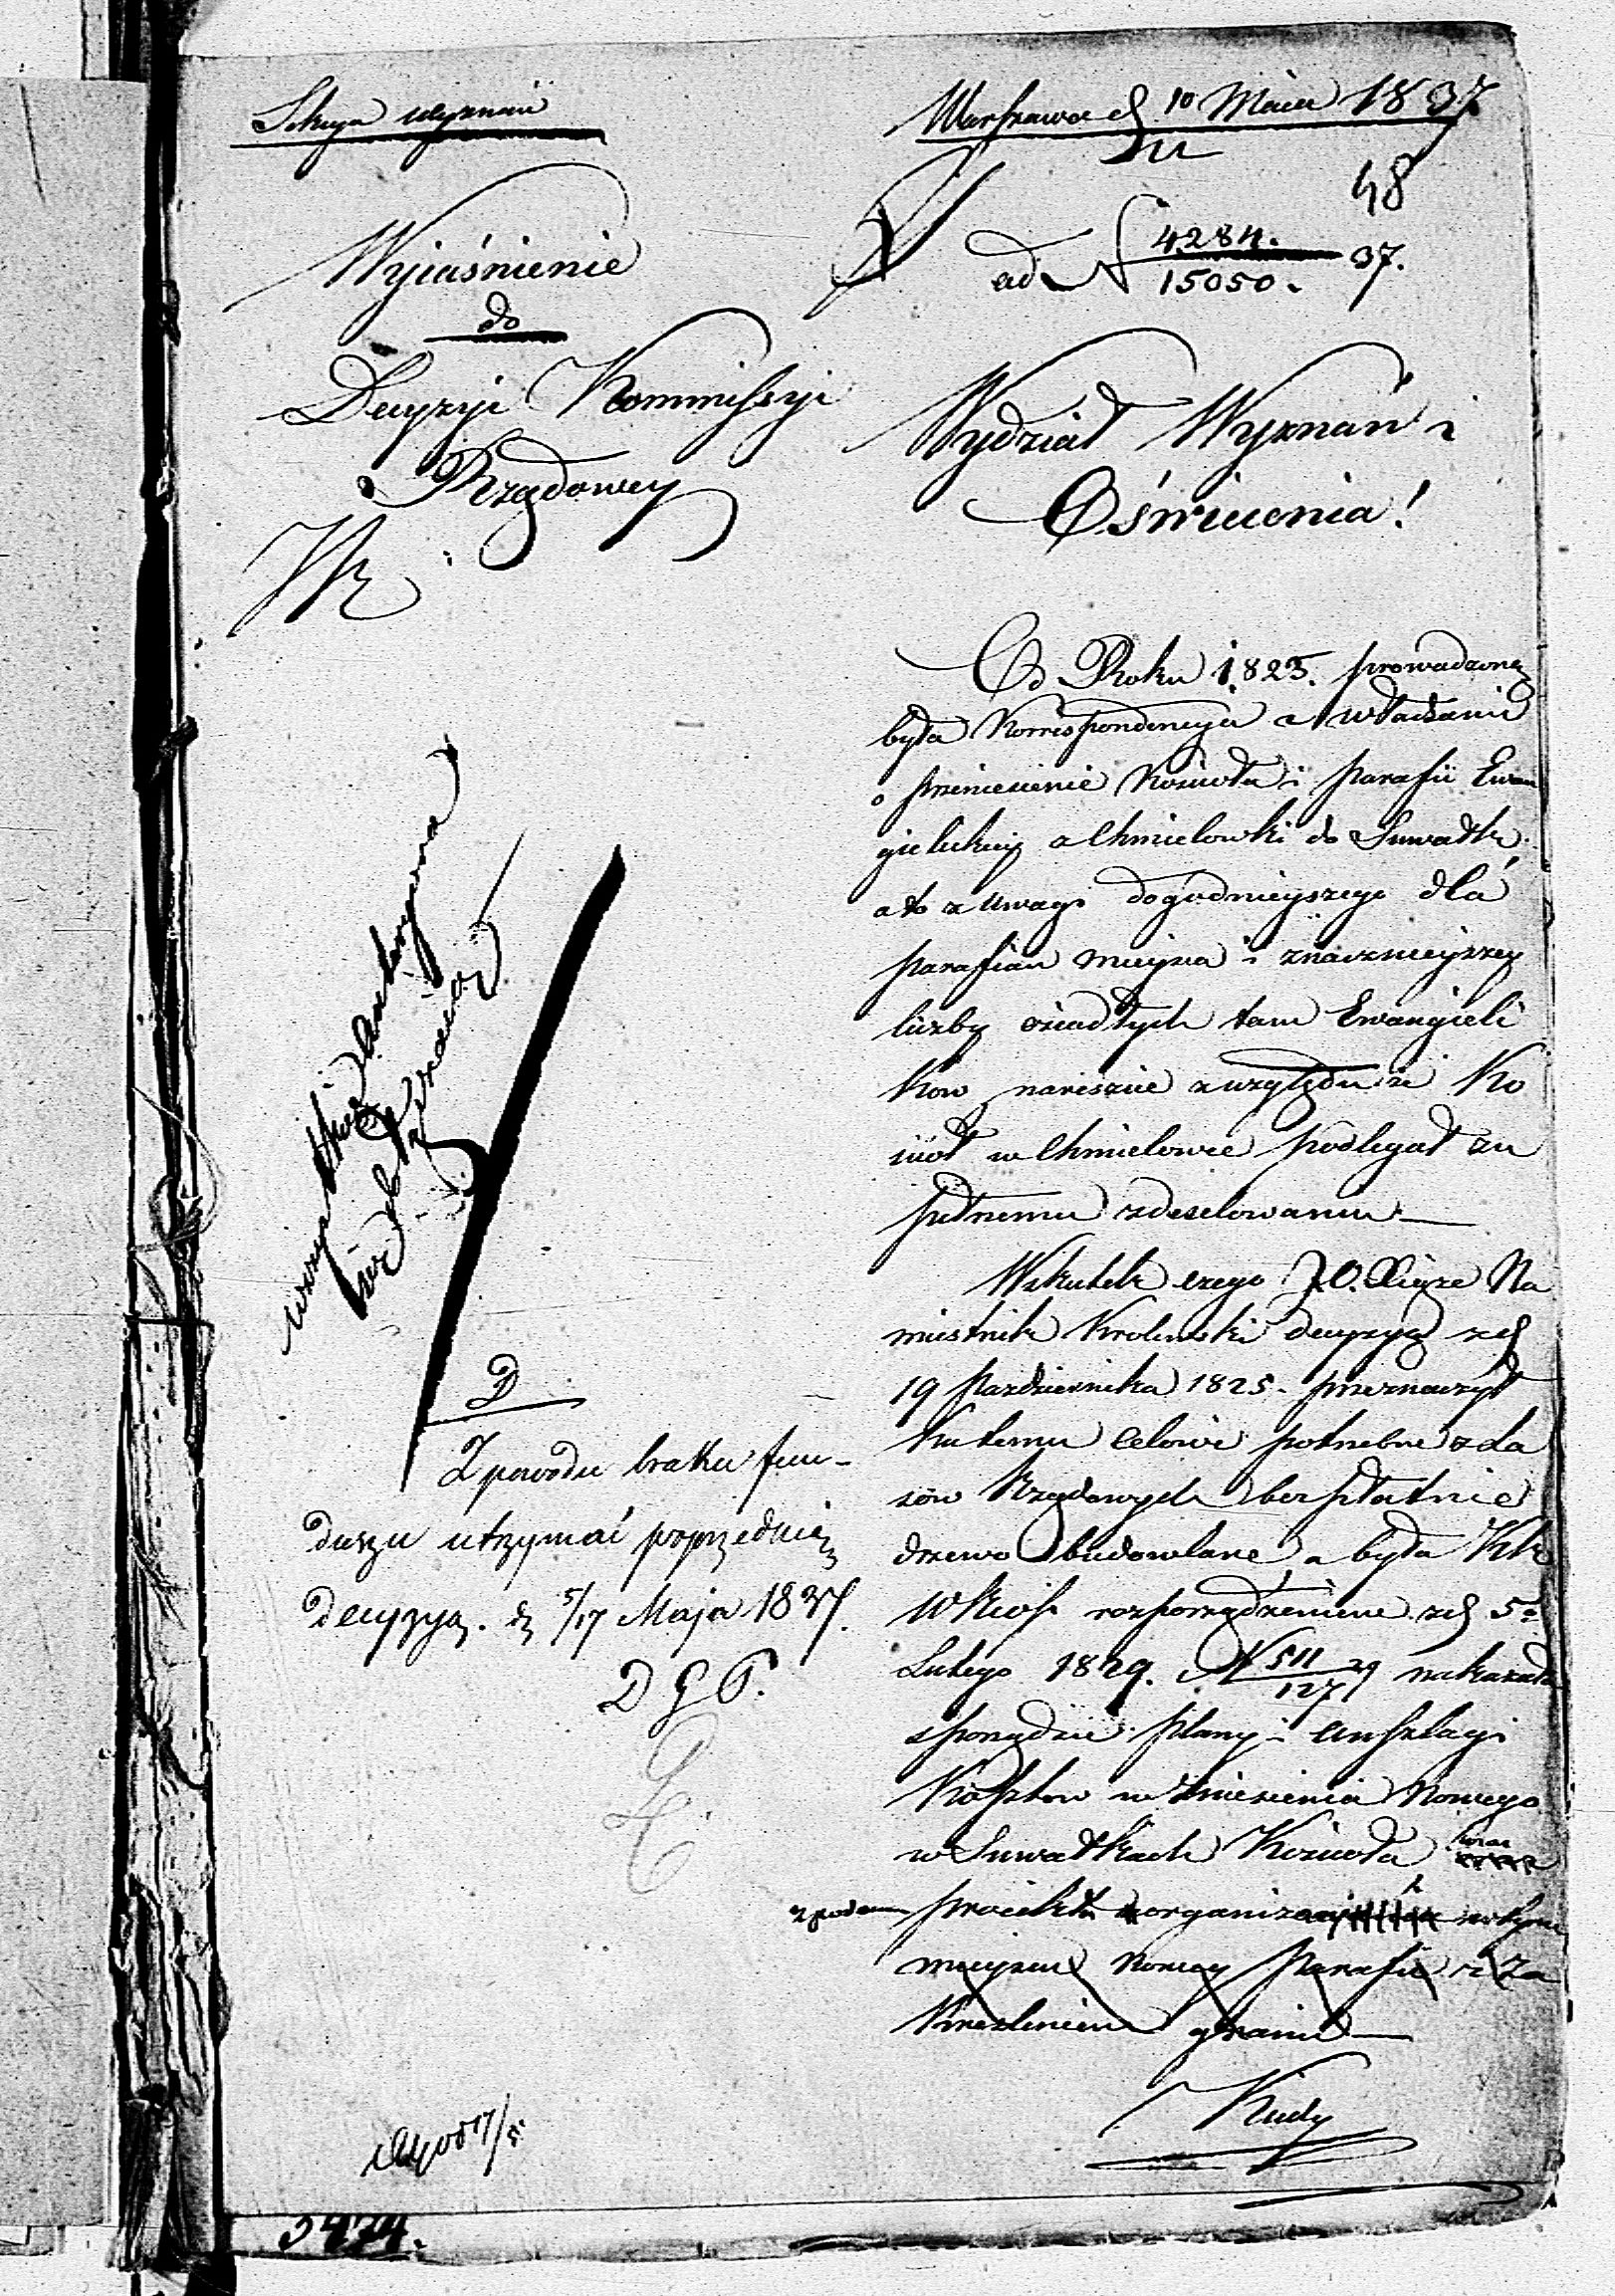 Sekcya Wyznań
Warszawa d. 10 Maia 1837
48
ad N 4284. / 15050. 37.
Wyiaśnienie
do
Decyzyi Kommissyi
Rządowey
Wydział Wyznań i
Oświecenia!
Od Roku 1825. prowadzoną
była Korrespondencya z władzami
o przeniesienie Kościoła i parafii Ewan
gielickiey z Chmielowki do Suwałk
a to z uwagi dogodnieyszego dla
parafian mieysca i znacznieyszey
liczby osiadłych tam Ewangieli
kow nareszcie z względu że Ko
ściół w Chmielowce podlegał zu
pełnemu zdezelowaniu —
W skutek czego J.O. Xiąże Na
miestnik Krolewski decyzyą z d.
19 Pazdziernika 1825. przeznaczył
ku temu celowi potrzebne z La
sów Rządowych bezpłatnie
drzewo budowlane a była
rozporządzeniem z d. 5.
Lutego 1829. N 511/127 29 nakazała
sporządzić plany i anszlagi
Kosztow wzniesienia nowego
w Suwałkach Kościoła
z podaniem proiektu organizacyi w tym
mieyscu nowey Parafii i Za
kreśleniem granic —
D
Z powodu braku fun-
duszu utrzymać poprzednią
decyzyą. d. 5/17 Maja 1837.
D G P.
5474.